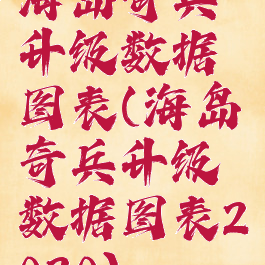 海岛奇兵
升级数据
图表(海岛
奇兵升级
数据图表2
020)